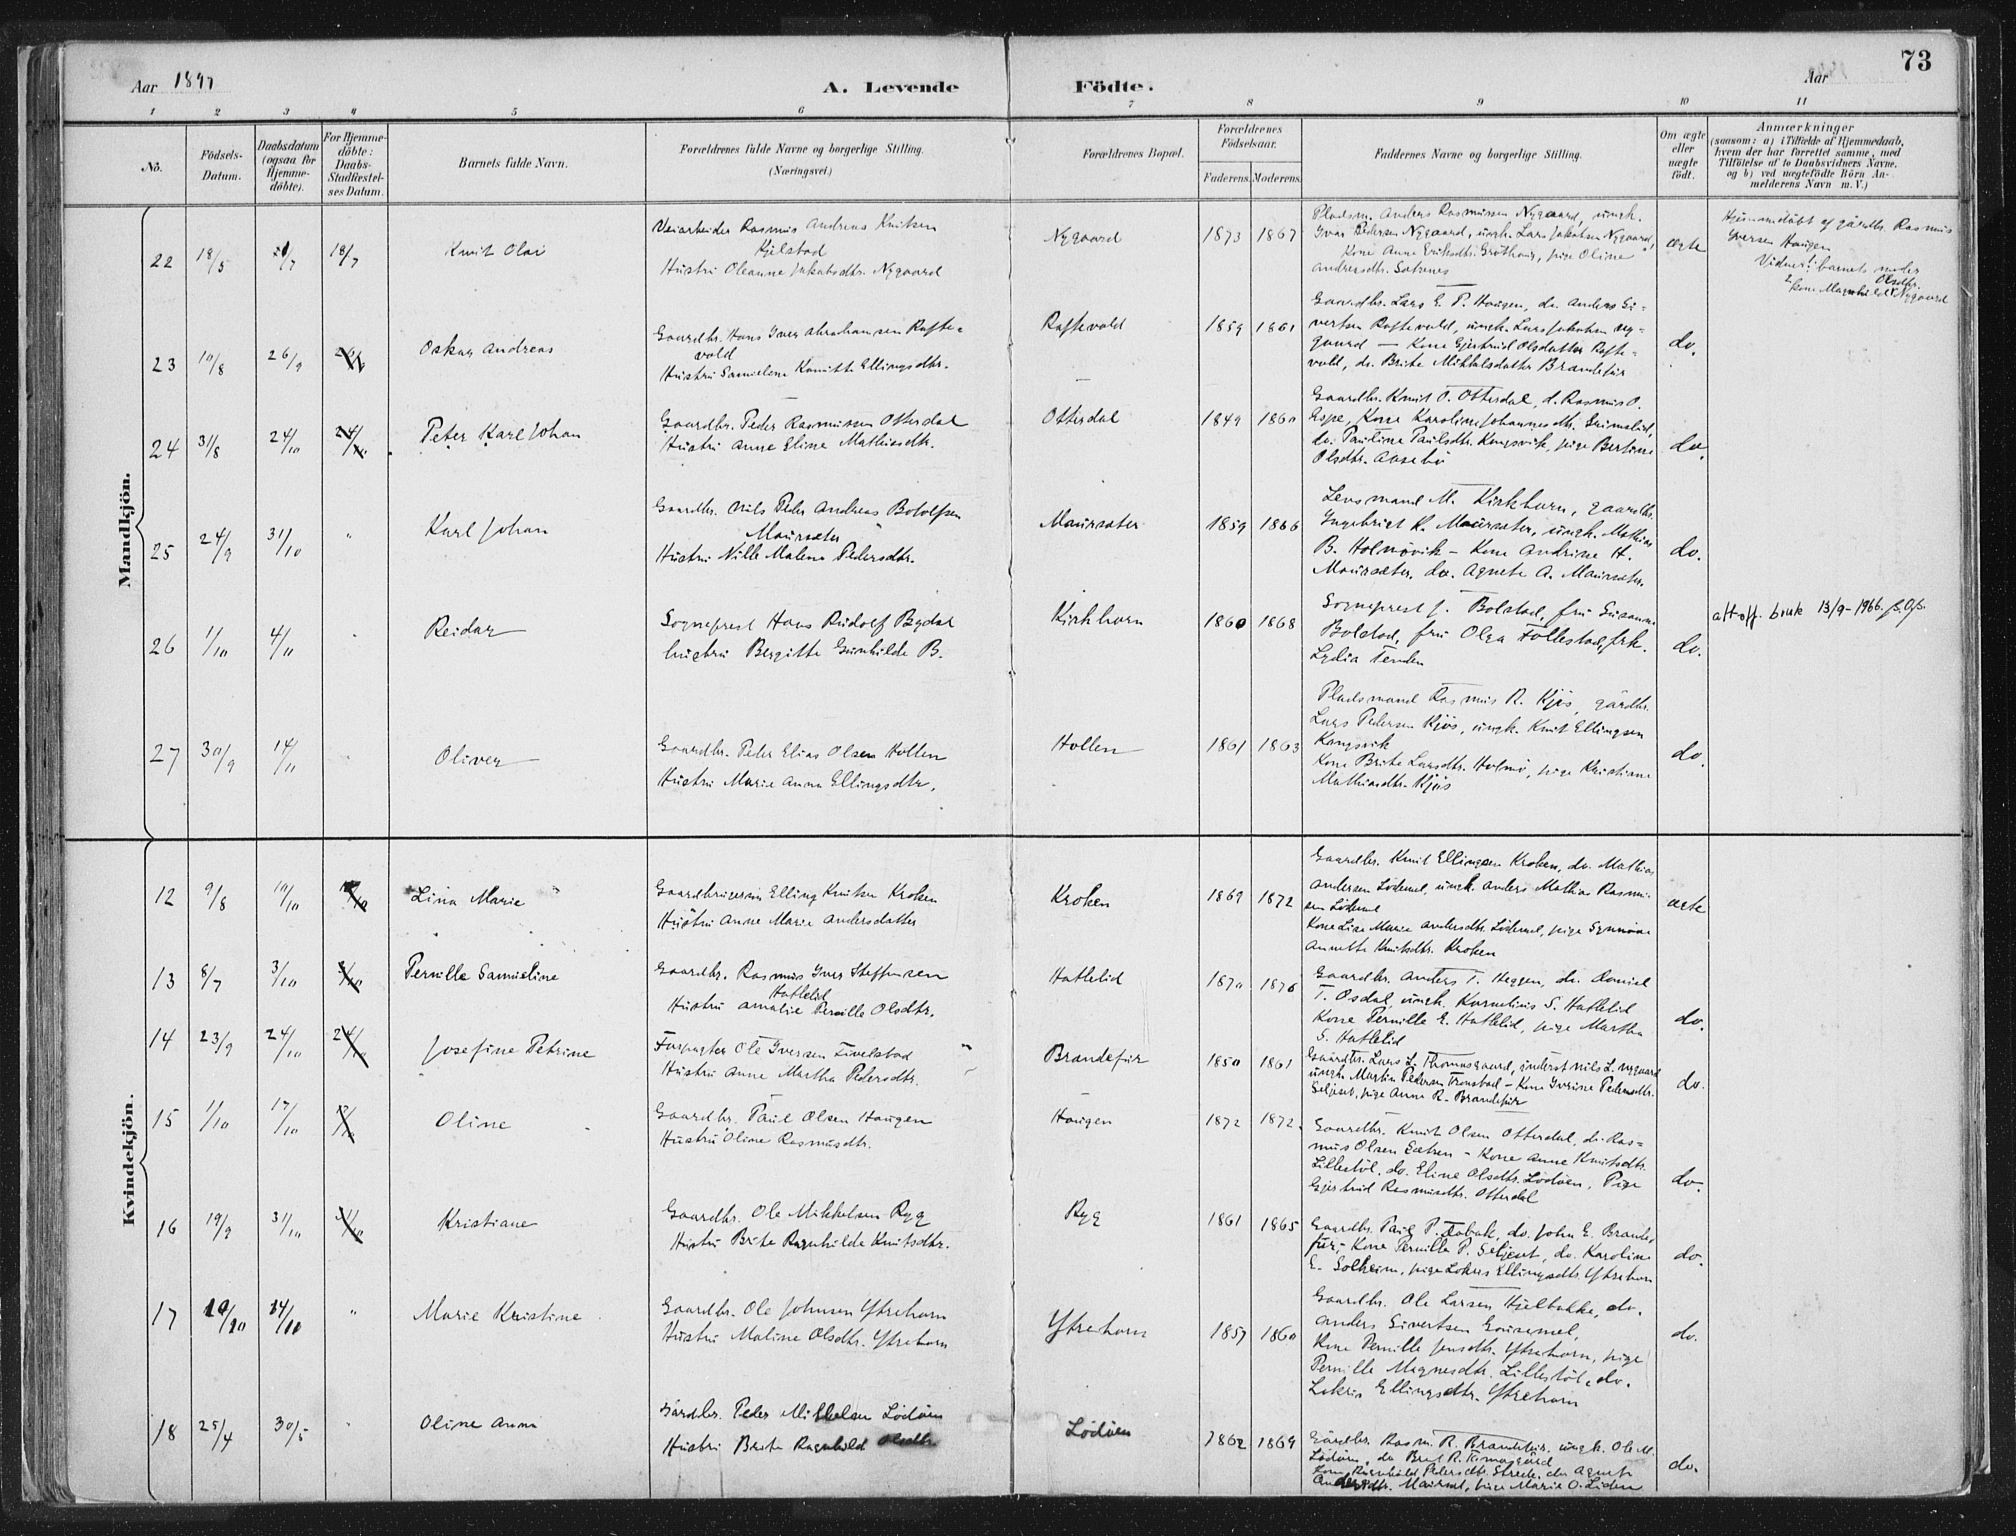 73
Aar 1897 A. Levende Födte. Aar
1 2 3 4 5 6 7 8 9 10 11
No. Födsels-Datum. Daabsdatum (ogsaa for Hjemmedöbte). For Hjemmedöbte: Daabs-Stadfestelses Datum. Barnets fulde Navn. Forældrenes fulde Navne og borgerlige Stilling. (Næringsvei) Forældrenes Bopæl. Forældrenes Födselsaar. Faderens. Moderens. Faddernes Navne og borgerlige Stilling. Om ægte eller uægte födt. Anmærkninger (saasom: a) i Tilfælde af Hjemmedaab, hvem der har forrettet samme, med Tilföielse af to Daabsvidners Navne, og b) ved uægtefödte Börn Anmelderens Navn m. V.)
Mandkjön.
22 18/5 18/7 Knut Olai
Veiarbeider Rasmus Andreas Knitsen
Kjelstad
Hustru Oleanne Jakobsdtr. Nygaard
Nygaard 1873 1867
Pladsm. Anders Rasmussen Nygaard, ungk.
Ivar Pedersen Nygaard, ungk. Lars Jakobsen Nygaard,
Kone Anne Eriksdtr. Grøthaug, pige Oline
Andersdtr. Sætrenes
ægte
Hjemmedöbt af gårdbr. Rasmus
Iversen Haugen
Vidner: barnets moder
Kone Magnhild Olsdtr. Nygaard
23 10/8 26/9 Oskar Andreas
Gaardbr. Hans Iver Abrahamsen Rafte-
vold
Hustru Samueline Kanutte Ellingsdtr.
Raftevold 1859 1861
Gaardbr. Lars E. P. Haugen, do. Anders Si-
vertsen Raftevold, ungk. Lars Jakobsen Ny-
gaard — Kone Gjertrud Olsdatter Rafte-
vold, do. Brite Mikkelsdatter Brandefur
do.
24 31/8 24/10 24/10 Peter Karl Johan
Gaardbr. Peder Rasmussen Otterdal
Hustru Anne Eline Mathiasdtr.
Otterdal 1849 1860
Gaardbr. Knut O. Otterdal, d. Rasmus O.
Espe, Kone Karoline Johannesdtr. Grimslid,
do. Pauline Paulsdtr. Kongsvik, pige Bertine
Olsdtr. Aasebø
do.
25 24/9 31/10 " Karl Johan
Gaardbr. Nils Peder Andreas Botolfsen
Maursæter
Hustru Nille Malene Pedersdtr.
Maursæter 1859 1866
Lensmand M. Kirkhorn, gaardbr.
Ingebrigt K. Maursæter, ungk. Mathias
B. Holmøvik – Kone Andrine H.
Maursæter, do. Agnete A. Maursæter.
do.
26 1/10 4/11 Reidar
Sogneprest Hans Rudolf Bydal
hustru Bergitte Gunhilde B.
Kirkhorn 1860 1868
Sogneprest J. Bolstad, fru Susanne
Bolstad, fru Olga Follestad, frk.
Lydia Tenden
do.
att off. bruk 13/9-1966.
27 30/9 14/11 Oliver
Gaardbr. Peder Elias Olsen Hollen
Hustru Marie Anna Ellingsdtr.
Hollen 1861 1863
Pladsmand Rasmus R. Kjøs, gårdbr.
Lars Pedersen Kjøs, ungk. Knut Ellingsen
Kongsvik
Kone Brite Larsdtr. Holmø, pige Kristiane
Mathiasdtr. Kjøs
do.
Kvindekjön.
12 9/8 10/10 Lina Marie
Gaardbrugerm Elling Knutsen Kroken
Hustru Anne Marie Andersdatter
Kroken 1869 1872
Gaardbr. Knut Ellingsen Kroken, do. Mathias
Andersen Lødemel, ungk. Anders Mathias Rasmu-
sen Lødemel
Kone Lise Marie Andersdtr. Lødemel, pige Synnøve
Annette Knutsdtr. Kroken
ægte
13 8/7 3/10 3/10 Pernille Samueline
Gaardbr. Rasmus Iver Steffensen
Hatlelid
Hustru Amalie Pernille Olsdtr.
Hatlelid 1870 1876
Gaardbr. Anders T. Heggen, do. Daniel
T. Osdal, ungk. Kornelius S. Hatlelid
Kone Pernille E. Hatlelid, pige Martha
S. Hatlelid
do.
14 23/9 24/10 24/10 Josefine Petrine
Forpagter Ole Iversen Tivelstad
Hustru Anne Martha Pedersdtr.
Brandefur 1850 1861
Gaardbr. Lars L. Thomasgaard, inderst Nils L. Nygaard
ungk. Martin Pedersen Tronstad – Kone Iverine Pedersdtr.
Seljeset, pige Anne R. Brandefur
do.
15 1/10 17/10 17/10 Oline
Gaardbr. Paul Olsen Haugen
Hustru Oline Rasmusdtr.
Haugen 1872 1872
Gaardbr. Knut Olsen Otterdal, do. Ras-
mus Olsen Sætren – Kone Anne Knutsdtr.
Lillestøl, do. Eline Olsdtr. Lødøen, Pige
Gjertrud Rasmusdtr. Otterdal
do.
16 19/9 31/10 31/10 Kristiane
Gaardbr. Ole Mikkelsen Ryg
Hustru Brite Ragnhilde Knutsdtr.
Ryg 1861 1865
Gaardbr. Paul P. Tobak, do. John E. Brande-
fur, – Kone Pernille P. Seljeset, do. Karoline
E. Solheim, pige Lokris Ellingsdtr. Ytrehorn
do.
17 10/10 14/11 " Marie Kristine
Gaardbr. Ole Johnsen Ytrehorn
Hustru Maline Olsdtr. Ytrehorn
Ytrehorn 1857 1860
Gaardbr. Ole Larsen Hjelbakke, do.
Anders Sivertsen Gausemel,
Kone Pernille Jensdtr. Ytrehorn, pige
Pernille Magnesdtr. Lillestøl, do.
Lokris Ellingsdtr. Ytrehorn
do.
18 25/4 30/5 Oline Anna
Gårdbr. Peder Mikkelsen Lødøen
Hustru Brite Ragnhild Olsdtr.
Lødøen 1862 1869
Gårdbr. Rasm. R. Brandefur, ungk. Ole M.
Lødøen, do
Kone Ragnhild Pedersdtr. do Agnete
Andersdtr. pige Marie O. Liden
do.